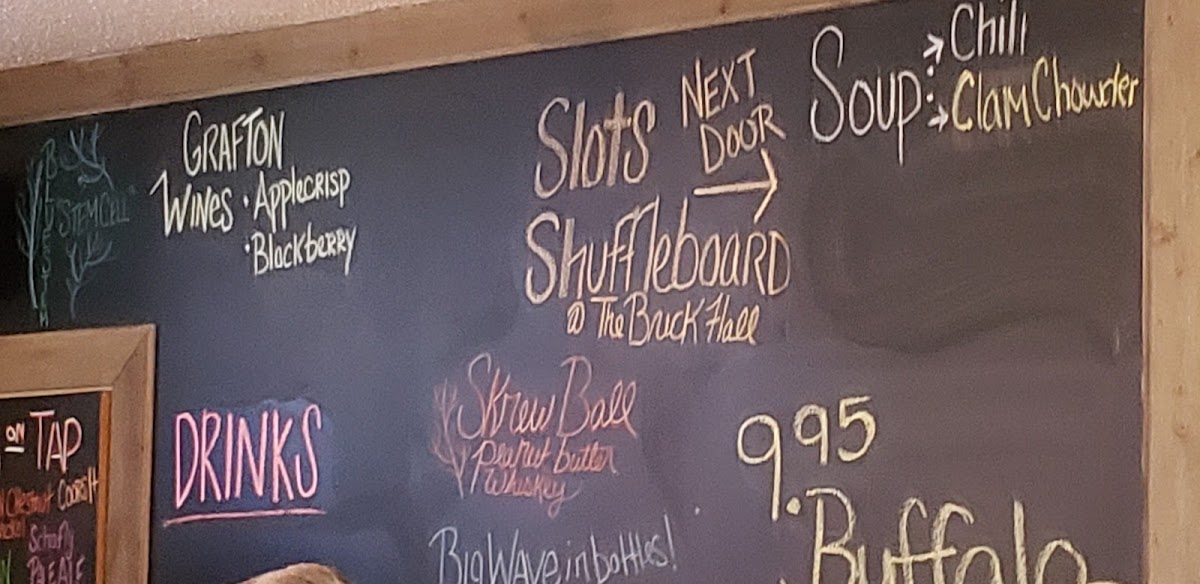 STEM CELL
GRAFTON
WINES • Applecrisp
• Blackberry
Slots NEXT DOOR →
Shuffleboard
@ The Brick Hall
Soup: → Chili
→ Clam Chowder
ON TAP
Coors Lt
Schlafly
PALE ALE
DRINKS
Skrew Ball
Peanut butter
Whiskey
Big Wave in bottles!
9.95
Buffalo